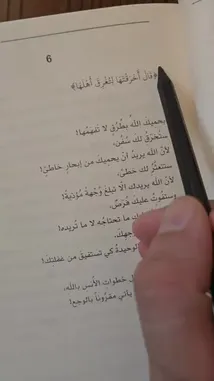 6
﴿قَالَ أَخَرَقْتَهَا لِتُغْرِقَ أَهْلَهَا﴾
يحميك الله بطُرُقٍ لا تفهمُها!
ستُخرَقُ لك سُفُن،
لأنّ الله يريدُ أن يحميكَ من إبحارٍ خاطئٍ!
ستتعثّرُ لك خطىً،
لأنّ الله يريدك ألّا تبلغَ وُجهةً مُؤذيةً!
وستفوتُ عليك فُرَصٌ،
ما تحتاجُه لا ما تُريده!
جهلكَ.
الوحيدةُ كي تستفيق من غفلتك!
خطوات الأُنسِ بالله،
يأتي مقروناً بالوجع!